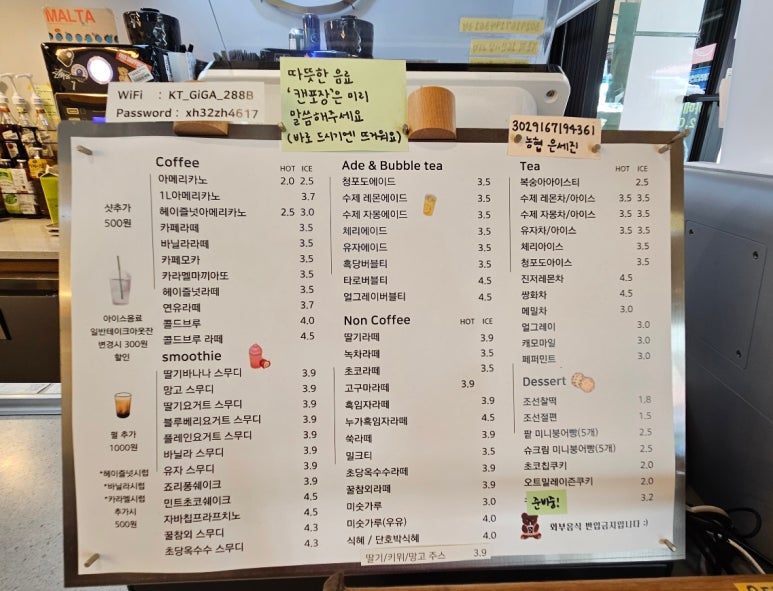 MALTA
WiFi : KT_GiGA_288B
Password : xh32zh4617
따뜻한 음료
'캔포장'은 미리
말씀해주세요
(바로 드시기엔 뜨거워요)
3029167194361
농협 은세진
샷추가
500원
아이스음료
일반테이크아웃잔
변경시 300원
할인
펄 추가
1000원
*헤이즐넛시럽
*바닐라시럽
*카라멜시럽
추가시
500원
Coffee HOT ICE
아메리카노 2.0 2.5
1L아메리카노 3.7
헤이즐넛아메리카노 2.5 3.0
카페라떼 3.5
바닐라라떼 3.5
카페모카 3.5
카라멜마끼아또 3.5
헤이즐넛라떼 3.5
연유라떼 3.7
콜드브루 4.0
콜드브루 라떼 4.5
smoothie
딸기바나나 스무디 3.9
망고 스무디 3.9
딸기요거트 스무디 3.9
블루베리요거트 스무디 3.9
플레인요거트 스무디 3.9
바닐라 스무디 3.9
유자 스무디 3.9
쵸리퐁쉐이크 3.9
민트초코쉐이크 4.5
자바칩프라프치노 4.5
꿀참외 스무디 4.3
초당옥수수 스무디 4.3
Ade & Bubble tea
청포도에이드 3.5
수제 레몬에이드 3.5
수제 자몽에이드 3.5
체리에이드 3.5
유자에이드 3.5
흑당버블티 3.5
타로버블티 4.5
얼그레이버블티 4.5
Non Coffee HOT ICE
딸기라떼 3.9
녹차라떼 3.5
초코라떼 3.5
고구마라떼 3.9
흑임자라떼 3.9
누가흑임자라떼 4.5
쑥라떼 3.9
밀크티 3.5
초당옥수수라떼 3.9
꿀참외라떼 3.9
미숫가루 3.0
미숫가루(우유) 4.0
식혜 / 단호박식혜 4.0
딸기/키위/망고 주스 3.9
Tea HOT ICE
복숭아아이스티 2.5
수제 레몬차/아이스 3.5 3.5
수제 자몽차/아이스 3.5 3.5
유자차/아이스 3.5 3.5
체리아이스 3.5
청포도아이스 3.5
진저레몬차 4.5
쌍화차 4.5
메밀차 3.0
얼그레이 3.0
캐모마일 3.0
페퍼민트 3.0
Dessert
조선찰떡 1.8
조선절편 1.5
팥 미니붕어빵(5개) 2.5
슈크림 미니붕어빵(5개) 2.5
초코칩쿠키 2.0
오트밀레이즌쿠키 2.0
준비중! 3.2
외부음식 반입금지입니다 :)